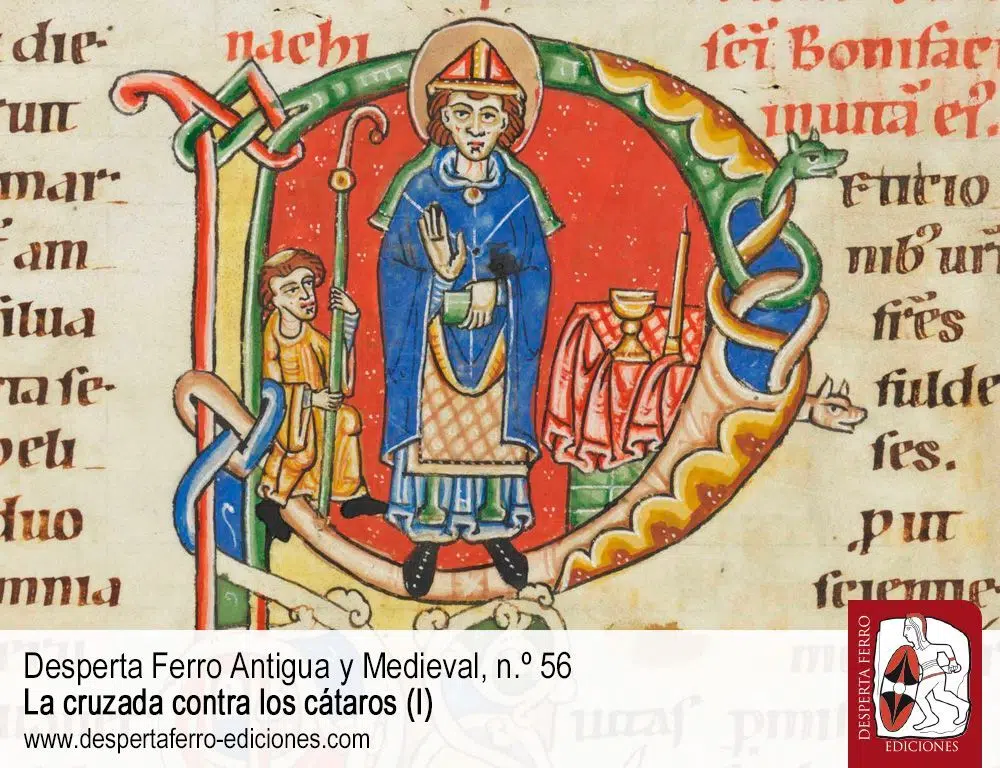 die·
run
mar·
am
ilua
ta ſe·
peli
duo
mnia
nachi
ſc̄i Bonifac
inunā eī.
ETITIO
nib᷒ urī
fr̄es
fulde
ſes.
put
ſcienne
Desperta Ferro Antigua y Medieval, n.º 56
La cruzada contra los cátaros (I)
www.despertaferro-ediciones.com
DESPERTA FERRO
EDICIONES